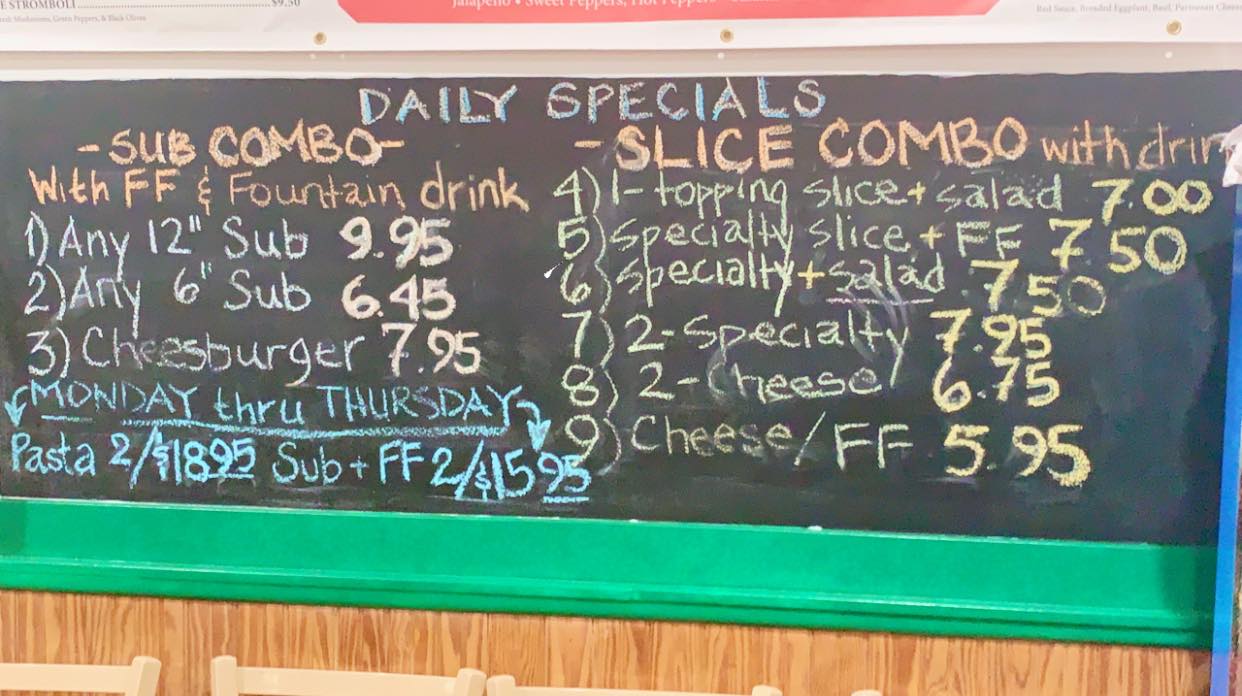 E STROMBOLI ........ $9.50
Fresh Mushrooms, Green Peppers, & Black Olives
Jalapeño • Sweet Peppers, Hot Peppers
Red Sauce, Breaded Eggplant, Basil, Parmesan Cheese
DAILY SPECIALS
-SUB COMBO-
With FF & Fountain drink
1) Any 12" Sub 9.95
2) Any 6" Sub 6.45
3) Cheesburger 7.95
MONDAY thru THURSDAY
Pasta 2/$18.95 Sub + FF 2/$15.95
- SLICE COMBO with drin
4) 1-topping slice + salad 7.00
5) Specialty slice + FF 7.50
6) Specialty + salad 7.50
7) 2-Specialty 7.95
8) 2-Cheese 6.75
9) Cheese/FF 5.95